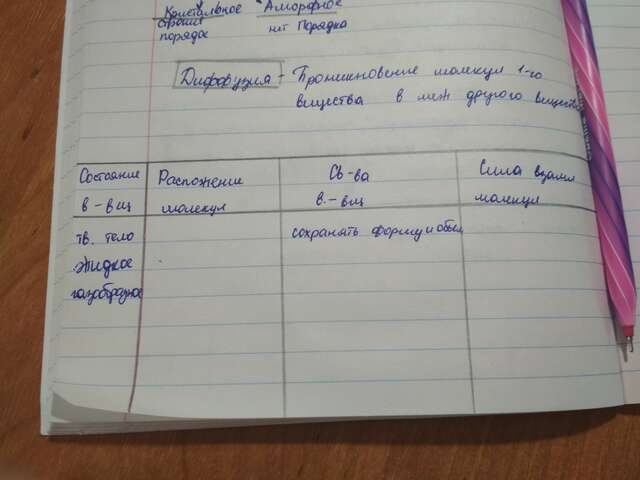 Кристальное Аморфное
строгий
порядок нет Порядка
Диффузия - Проникновение молекул 1-го
вещества в меж другого вещества
Состояние Располжение Св-ва Сила взаим
в-вщ молекул в.-вщ молекул
тв. тело сохранять форму и обьем
жидкое
газобразное